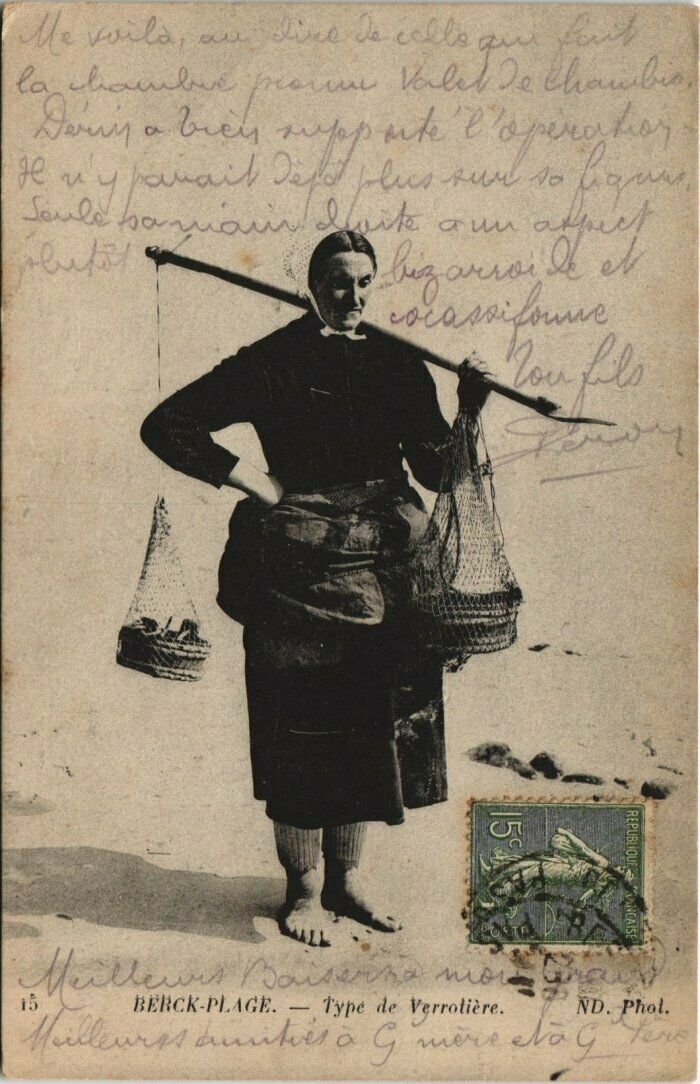 Me voilà, au dire de celle qui fait
la chambre promu Valet de chambre
Denis a bien supporté l'opération
Il n'y parait déjà plus sur sa figure
Seule sa main droite a un aspect
plutôt bizarroïde et
cocassiforme
Ton fils
15c
REPUBLIQUE FRANÇAISE
POSTES
Meilleurs Baisers à mon Grand
15 BERCK-PLAGE. — Type de Verrotière. ND. Phot.
Meilleurs amitiés à G mère et à G Père